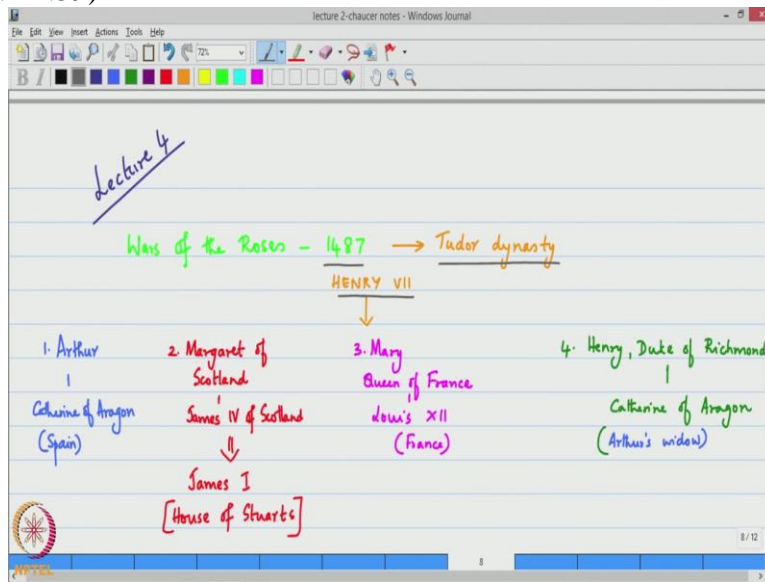 lecture 2-chaucer notes - Windows Journal
File Edit View Insert Actions Tools Help
72%
B I
Lecture 4
Wars of the Roses - 1487 → Tudor dynasty
HENRY VII
1. Arthur
Catherine of Aragon
(Spain)
2. Margaret of
Scotland
James IV of Scotland
James I
[House of Stuarts]
3. Mary
Queen of France
Louis XII
(France)
4. Henry, Duke of Richmond
Catherine of Aragon
(Arthur's widow)
NPTEL
8
8/12